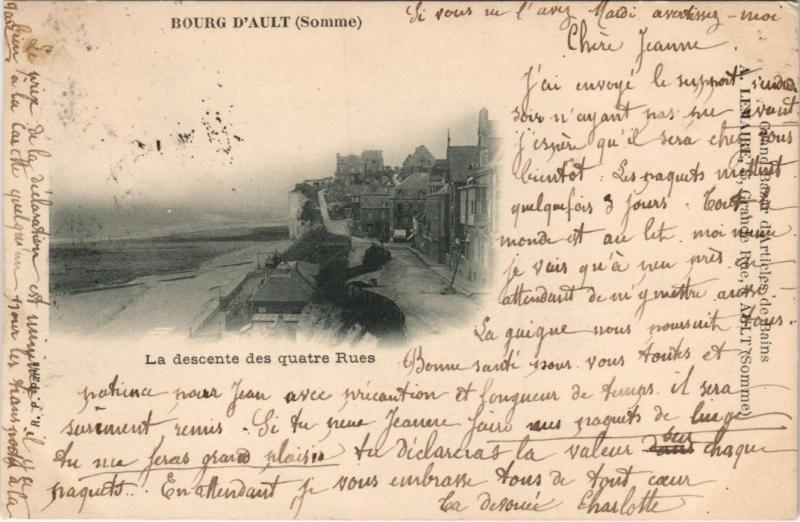 BOURG D'AULT (Somme)
Si vous ne l'avez Mardi avertissez-moi
Chère Jeanne.
J'ai envoyé le support vendredi
soir n'ayant pas pu avant
j'espère qu'il sera chez vous
bientôt. Les paquets mettent
quelquefois 3 jours. Tout
monde est au lit. moi même
je vais qu'à peu près en
attendant de m'y mettre aussi
La guigne nous poursuit tous.
Bonne santé pour vous toutes et
patience pour Jean avec précaution et longueur de temps il sera
sûrement remis. Si tu peux Jeanne faire mes paquets de linge
tu me feras grand plaisir tu déclareras la valeur sur chaque
paquets... En attendant je vous embrasse tous de tout cœur
Ta dévouée Charlotte
La descente des quatre Rues
Grand Bazar d'Articles de Bains
A. LEMAIRE, Grande Rue, AULT (Somme)
Le prix de la déclaration est il y a
bien à la carotte quelqu'un pour les transports à la
gare